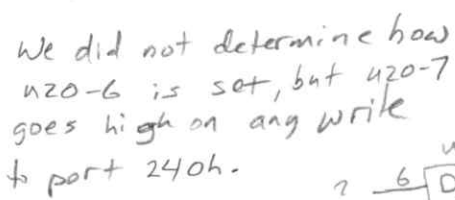 We did not determine how
u20-6 is set, but u20-7
goes high on any write
to port 240h.
? 6 D